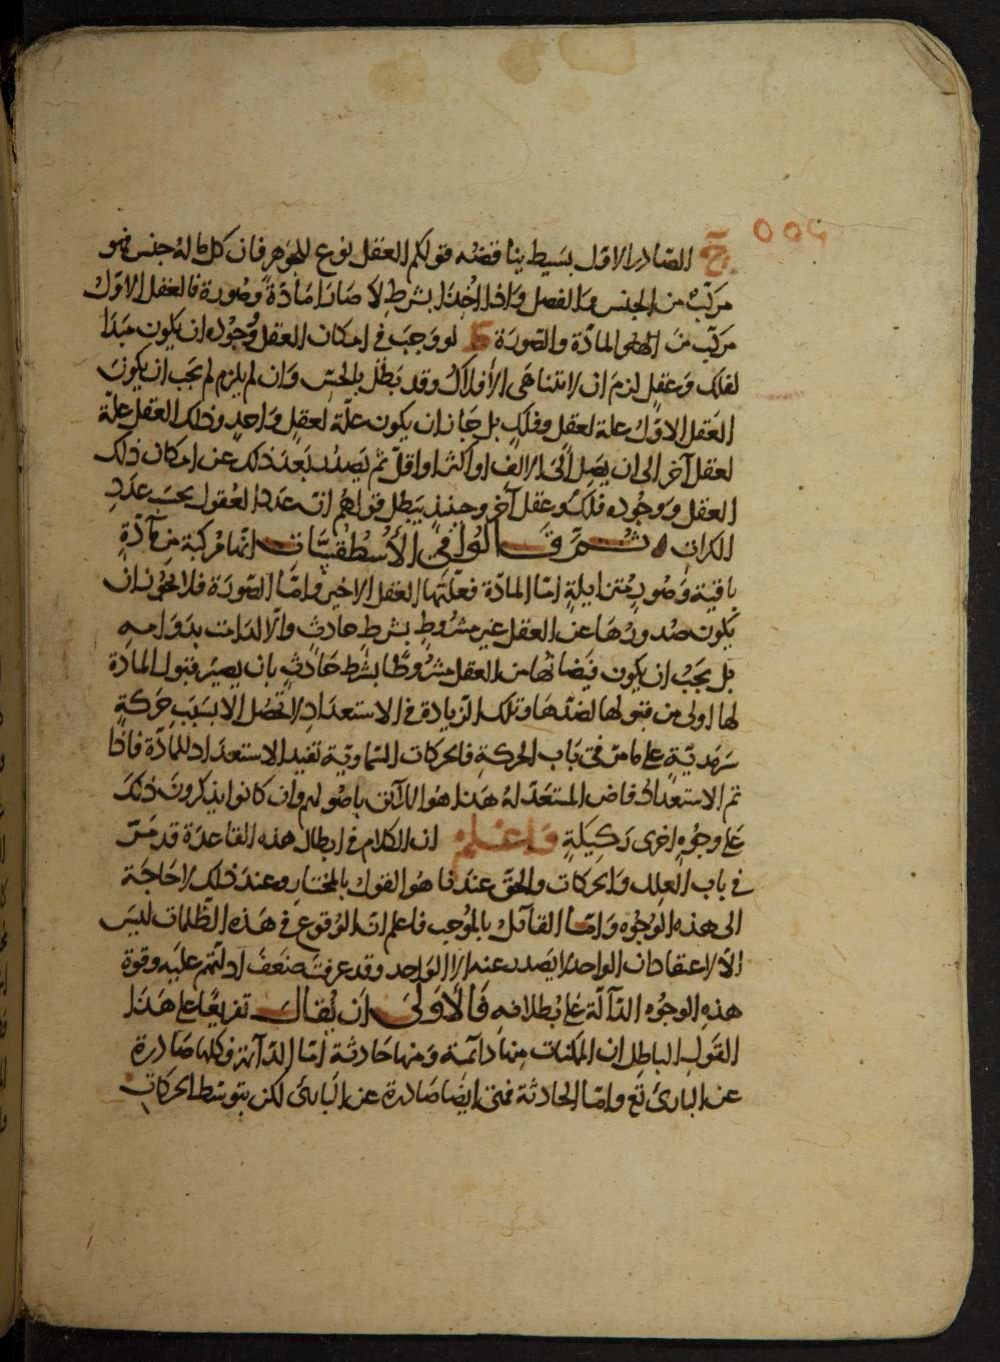 ٥٥٤
ح الصادر الاول بسيط يناقضه قولكم العقل نوع للجوهر فان كل ما له جنس فهو
مركب من الجنس والفصل واذا اخذا بشرط لا صارا مادة وصورة فالعقل الاول
مركب من المادة والصورة ط لو وجب في امكان العقل ووجوده ان يكون مبدا
لفلك وعقل لزم ان لا تتناهى الافلاك وقد بطل بالحس وان لم يلزم لم يجب ان يكون
العقل الاول علة لعقل وفلك بل جاز ان يكون علة لعقل واحد وذلك العقل علة
لعقل آخر الى ان يصل الى الالف او اكثر او اقل ثم يصدر بعد ذلك عن امكان ذلك
العقل ووجوده فلك وعقل آخر وحينئذ يبطل قولهم ان عدد العقول بحسب عدد
الكرات ه ثم قالوا في الاسطقسات انها مركبة من مادة
باقية وصور متزايلة اما المادة فعلتها العقل الاخير واما الصورة فلا يجوز ان
يكون صدورها عن العقل غير مشروط بشرط حادث والا لدامت بدوامه
بل يجب ان يكون فيضانها من العقل مشروطا بشرط حادث بان يصير قبول المادة
لها اولى من قبولها لضدها وتلك الزيادة في الاستعداد لا تحصل الا بسبب حركة
سرمدية على ما مر في باب الحركة فالحركات السماوية تفيد الاستعداد للمادة فاذا
تم الاستعداد فاض المستعد له هذا هو اللائق باصولهم وان كانوا يذكرون ذلك
على وجوه اخرى ركيكة واعلم ان الكلام في ابطال هذه القاعدة قد مر
في باب العلل والحركات والحق عندنا هو القول بالمختار وعند ذلك لا حاجة
الى هذه الوجوه واما القائل بالموجب فاعلم ان الوقوع في هذه الظلمات ليس
الا لاعتقاد ان الواحد لا يصدر عنه الا الواحد وقد عرفت ضعف ادلتهم عليه وقوة
هذه الوجوه الدالة على بطلانه فالاولى ان يقال تفريعا على هذا
القول الباطل ان الممكنات منها دائمة ومنها حادثة اما الدائمة فكلها صادرة
عن البارئ تع واما الحادثة فهي ايضا صادرة عن البارئ لكن بتوسط الحركات